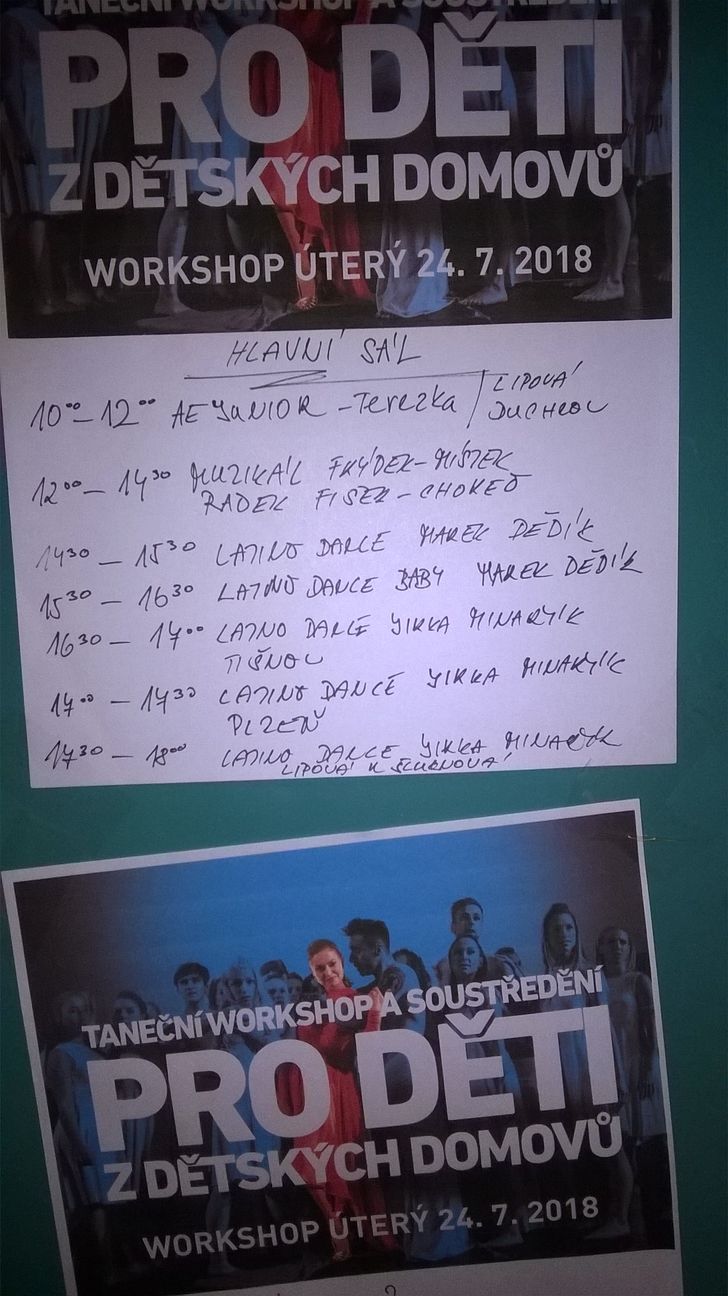 TANEČNÍ WORKSHOP A SOUSTŘEDĚNÍ
PRO DĚTI
Z DĚTSKÝCH DOMOVŮ
WORKSHOP ÚTERÝ 24. 7. 2018
HLAVNÍ SÁL
10⁰⁰ – 12⁰⁰ AEJUNIOR – Terezka / LIPOVÁ
DUCHCOV
12⁰⁰ – 14³⁰ MUZIKÁL FRÝDEK-MÍSTEK
RADEK FISER – CHOKEĎ
14³⁰ – 15³⁰ LATINO DANCE MAREK DĚDÍK
15³⁰ – 16³⁰ LATINO DANCE BABY MAREK DĚDÍK
16³⁰ – 17⁰⁰ LATINO DANCE JIRKA MINAŘÍK
TIŠNOV
17⁰⁰ – 17³⁰ LATINO DANCE JIRKA MINAŘÍK
PLZEŇ
17³⁰ – 18⁰⁰ LATINO DANCE JIRKA MINAŘÍK
LIPOVÁ U ŠLUKNOVA
TANEČNÍ WORKSHOP A SOUSTŘEDĚNÍ
PRO DĚTI
Z DĚTSKÝCH DOMOVŮ
WORKSHOP ÚTERÝ 24. 7. 2018